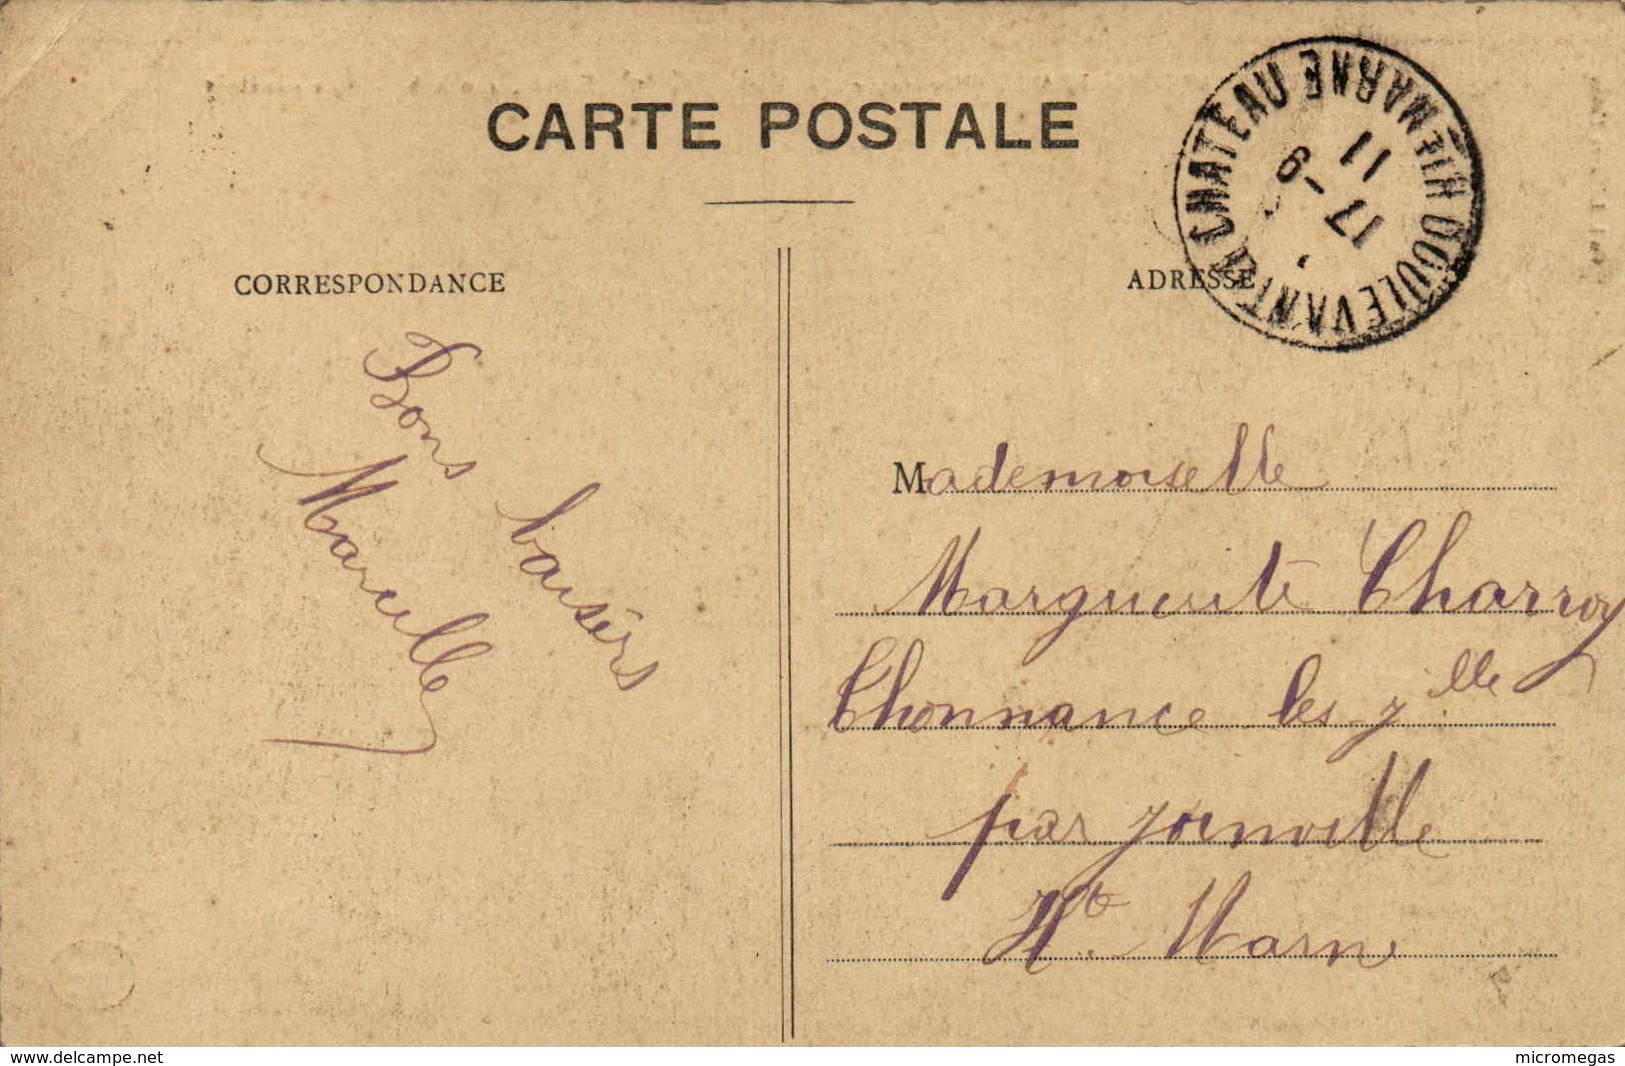 CARTE POSTALE
CORRESPONDANCE
ADRESSE
DOULEVANT-LE-CHATEAU HTE-MARNE
11
17-9
Bons baisers
Marcelle
Mademoiselle
Marguerite Charroy
Thonnance les J.ille
par Joinville
Hte. Marne
www.delcampe.net
micromegas